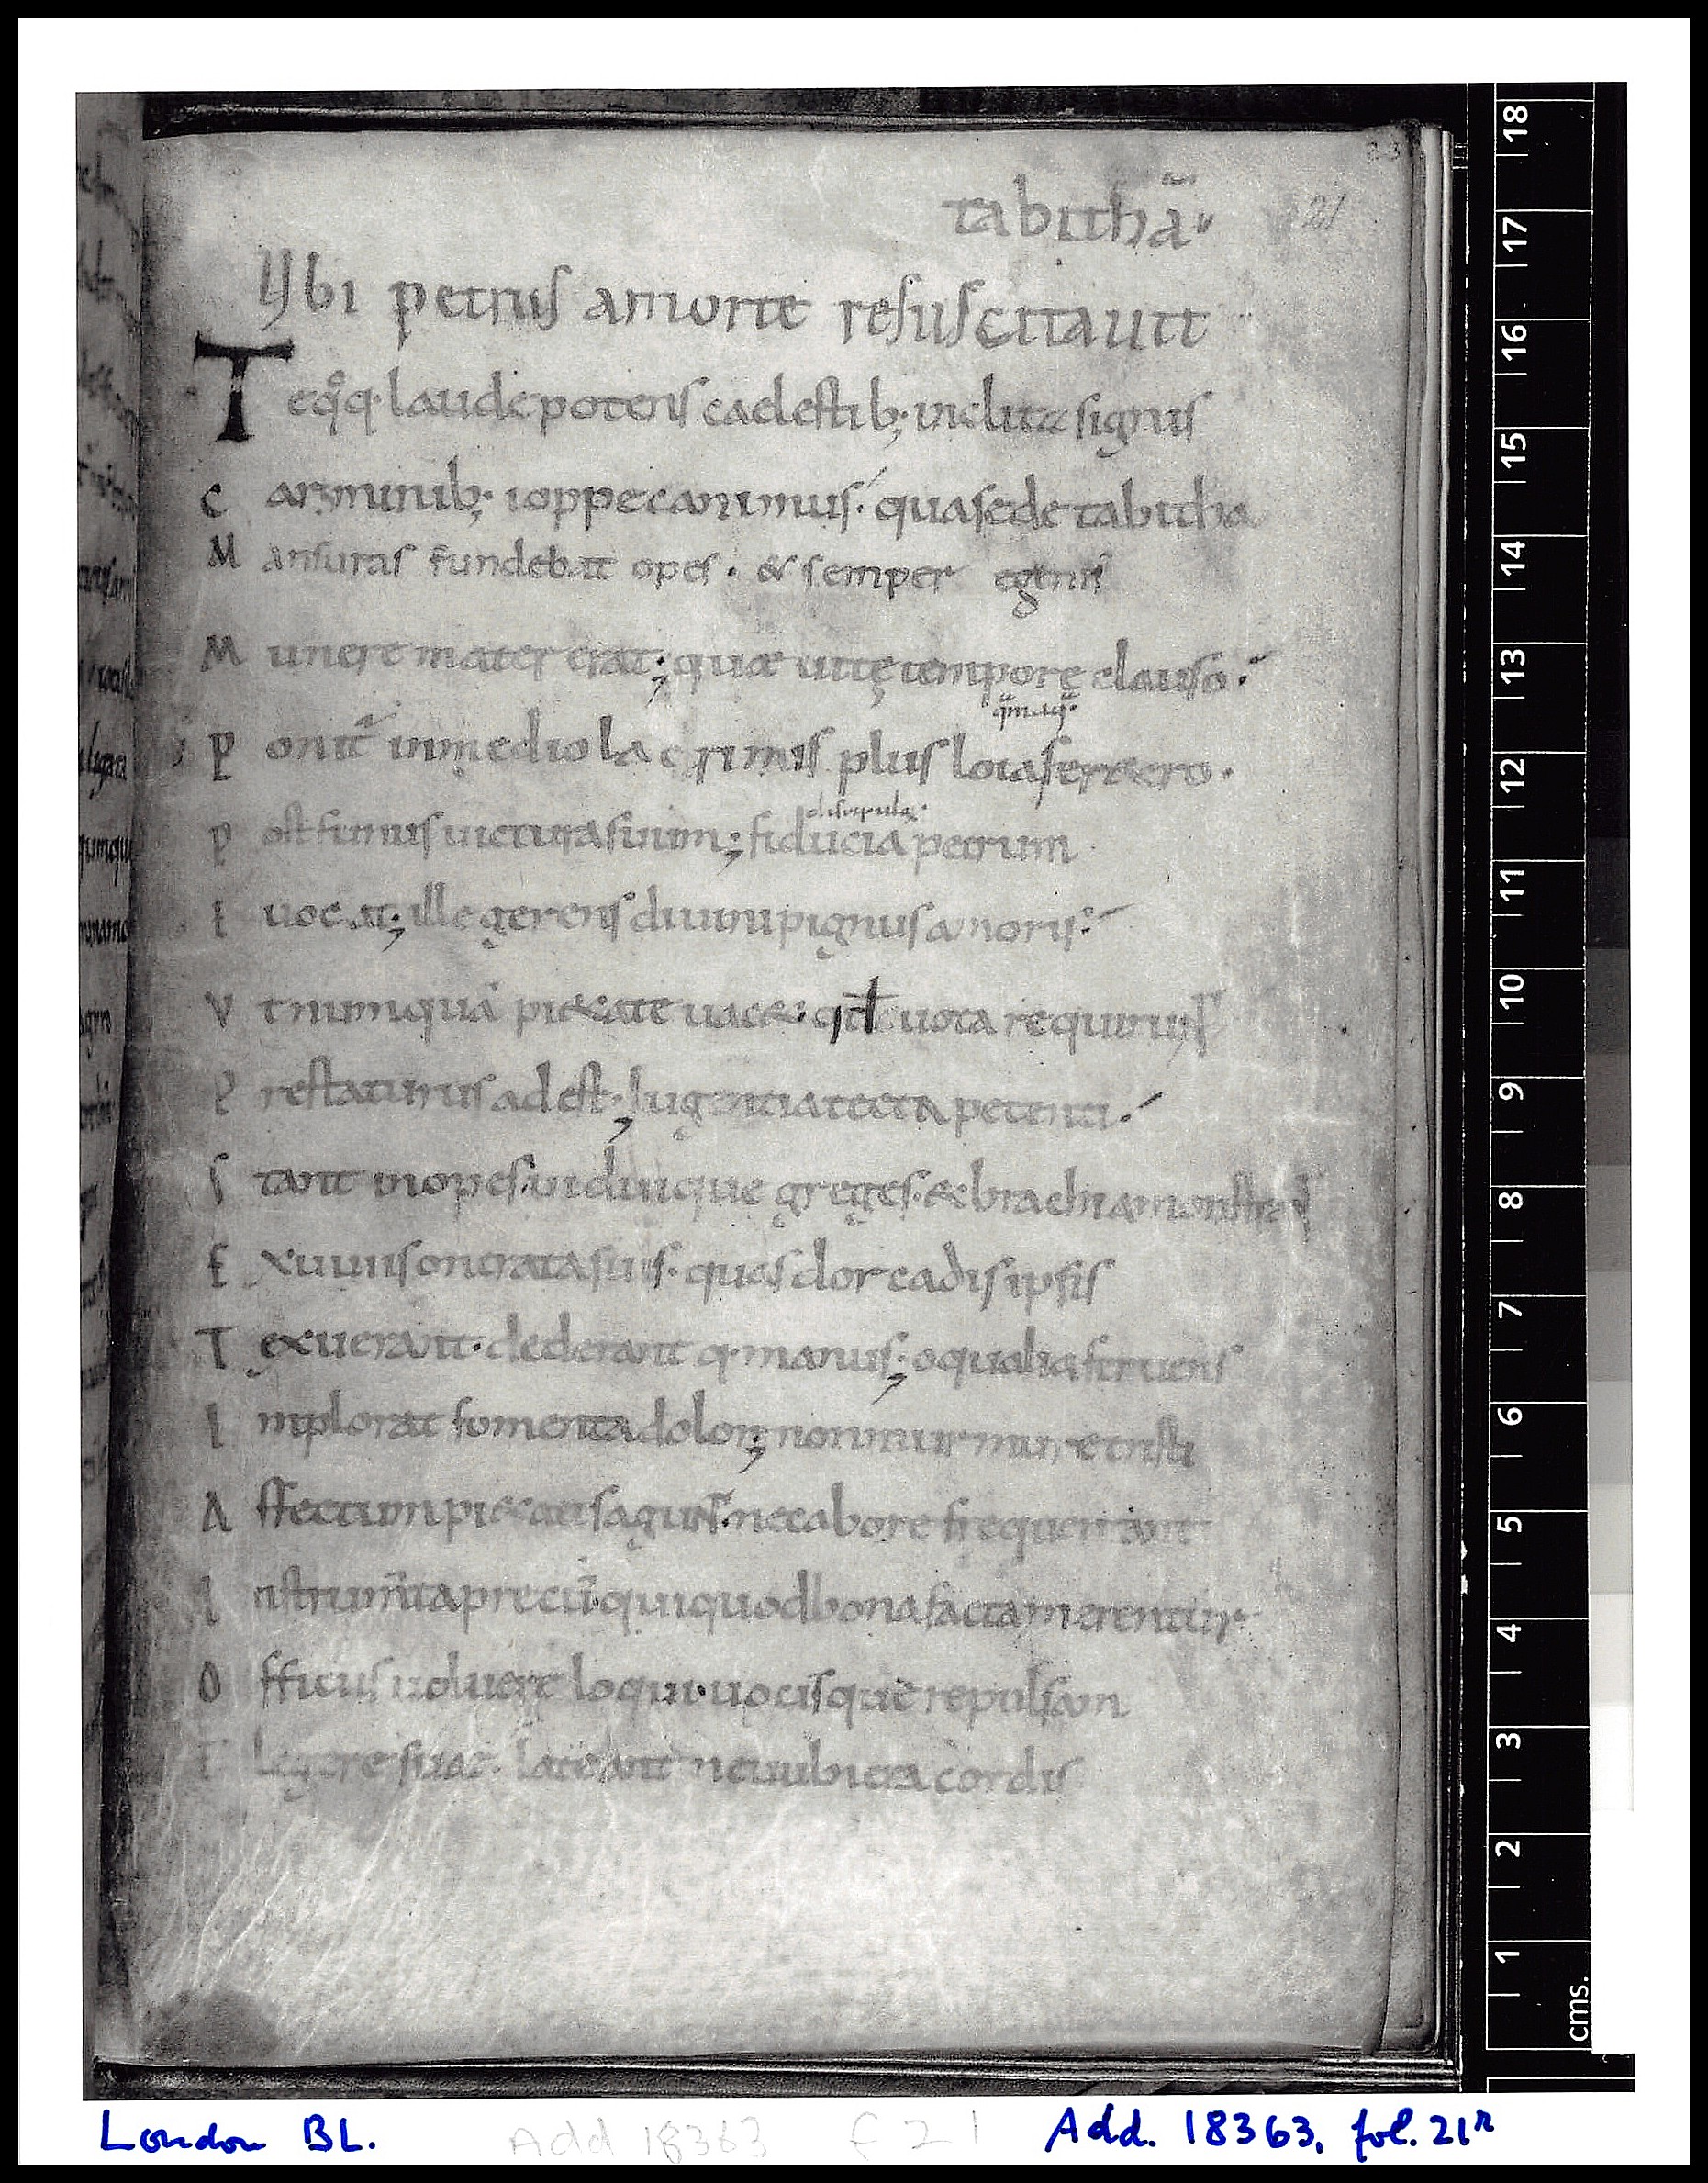 23
tabithā
21
Ubi petrus amorte resuscitauit
T eq̊q· laude potens caelestib; inclitae signis
C arminib; ioppe canimus. quasede tabitha
M ansuras fundebat opes. & semper egenis
M unere mater erat; quae uitę tempore clauso.
P onit᷑ inmedio lacrimis plus lota feretro.
discipulos
P ost funus uictura suum; fiducia petrum
I uocat; ille gerens diuini pignus amoris.
V t numquā pietate uacet· uota requirunt
P restaturus adest; lugentia tecta petenti.
S tant inopes· uiduique greges· & brachia monstrant
E xuuiis onerata suis· quas dorcadis ipsis
T exuerant· dederant q· manus; oqualia feruens
I mplorat fomenta dolor; non murmure tristi
A ffectum pietatis agunt· nec ab ore frequentant
I nstrum̄ta precū· qui quod bona facta merentur
O fficiis uoluere loqui· uocisque repulsam
F legere suae· lateant ne uubera cordis
cms.
1
2
3
4
5
6
7
8
9
10
11
12
13
14
15
16
17
18
London BL.
Add 18363 f 21
Add. 18363, fol. 21r